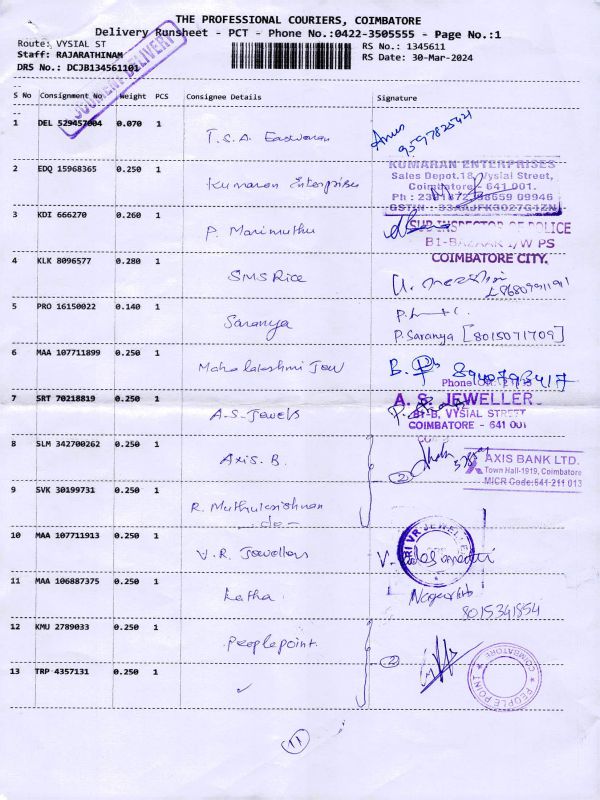 THE PROFESSIONAL COURIERS, COIMBATORE
Delivery Runsheet - PCT - Phone No.:0422-3505555 - Page No.:1
Route: VYSIAL ST
RS No.: 1345611
Staff: RAJARATHINAM
RS Date: 30-Mar-2024
DRS No.: DCJB134561101
DELIVERY
S No Consignment No Weight PCS Consignee Details Signature
1 DEL 529457004 0.070 1 T.S.A. Easwaran
9597825421
2 EDQ 15968365 0.250 1 Kumaran Enterprises
KUMARAN ENTERPRISES
Sales Depot.18, Vysial Street,
Coimbatore - 641 001.
3 KDI 666270 0.260 1 P. Marimuthu
SUB INSPECTOR OF POLICE
B1-BAZAAR L/W PS
COIMBATORE CITY.
4 KLK 8096577 0.280 1 SMS Rice
5 PRO 16150022 0.140 1 Saranya
P. Saranya [8015071709]
6 MAA 107711899 0.250 1 Mahalakshmi Jew
B. 8940793417
7 SRT 70218819 0.250 1 A.S. Jewels
A. S. JEWELLER
81-B, VYSIAL STREET
COIMBATORE - 641 001
8 SLM 342700262 0.250 1 Axis. B.
2
AXIS BANK LTD.
Town Hall-1919, Coimbatore
MICR Code:641-211 013
9 SVK 30199731 0.250 1 R. Muthukrishnan
-do-
10 MAA 107711913 0.250 1 V.R. Jewellers
SRI VR JEWELLERS
11 MAA 106887375 0.250 1 Latha.
8015341854
12 KMU 2789033 0.250 1 Peoplepoint.
2
PEOPLE POINT
COIMBATORE
13 TRP 4357131 0.250 1 ✓
11